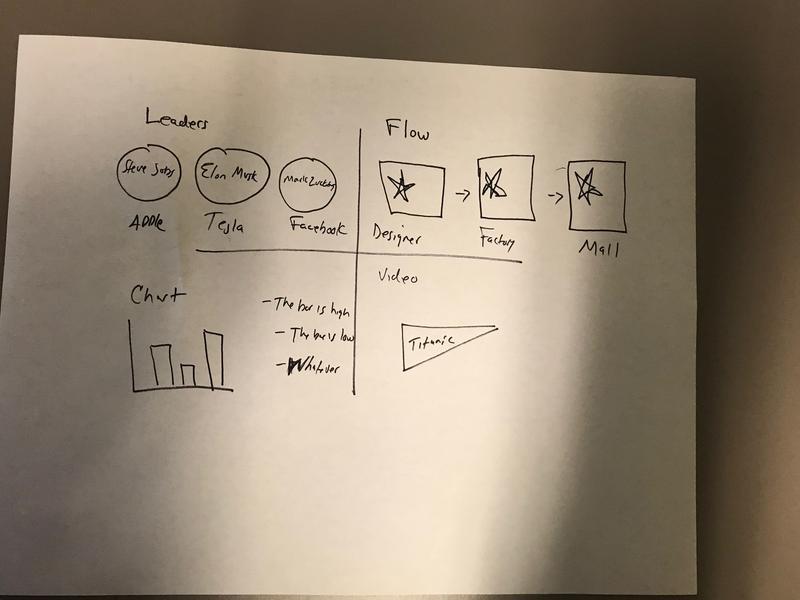 Leaders
Steve Jobs
Elon Musk
Apple
Tesla
Facebook
Flow
Designer
Factory
Mall
Chart
- The bar is high
- The bar is low
- Whatever
Video
Titanic